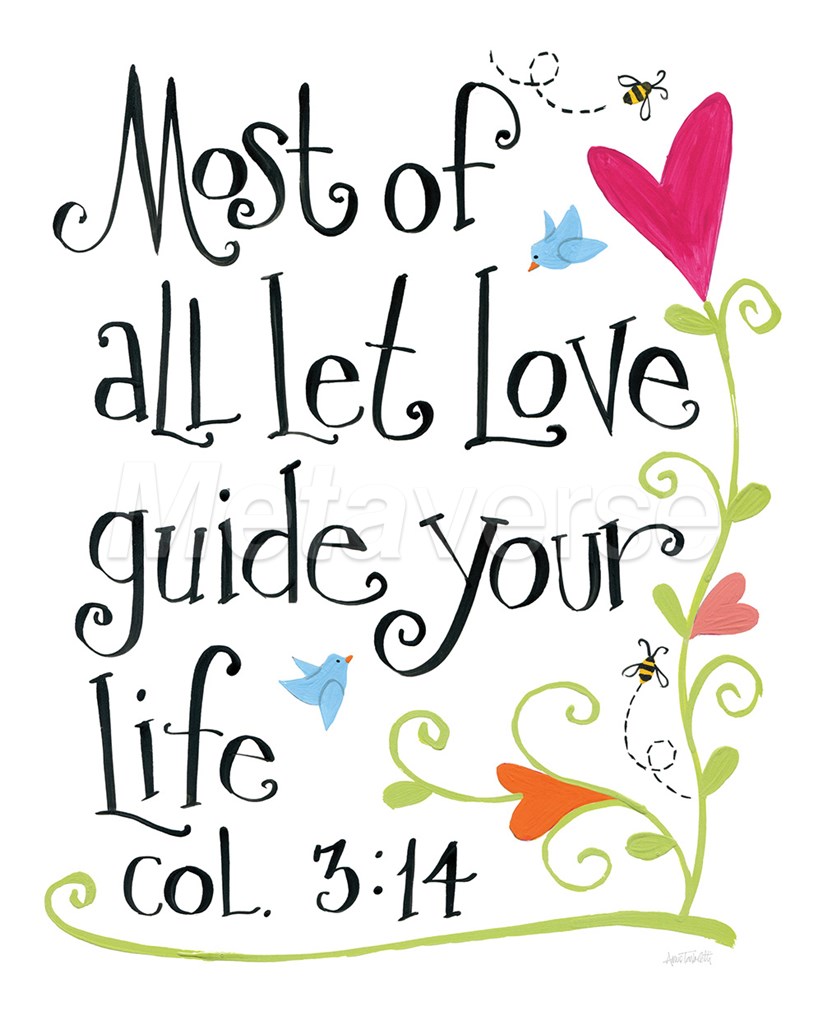 Most of
all let Love
guide your
Life
Col. 3:14
Metaverse